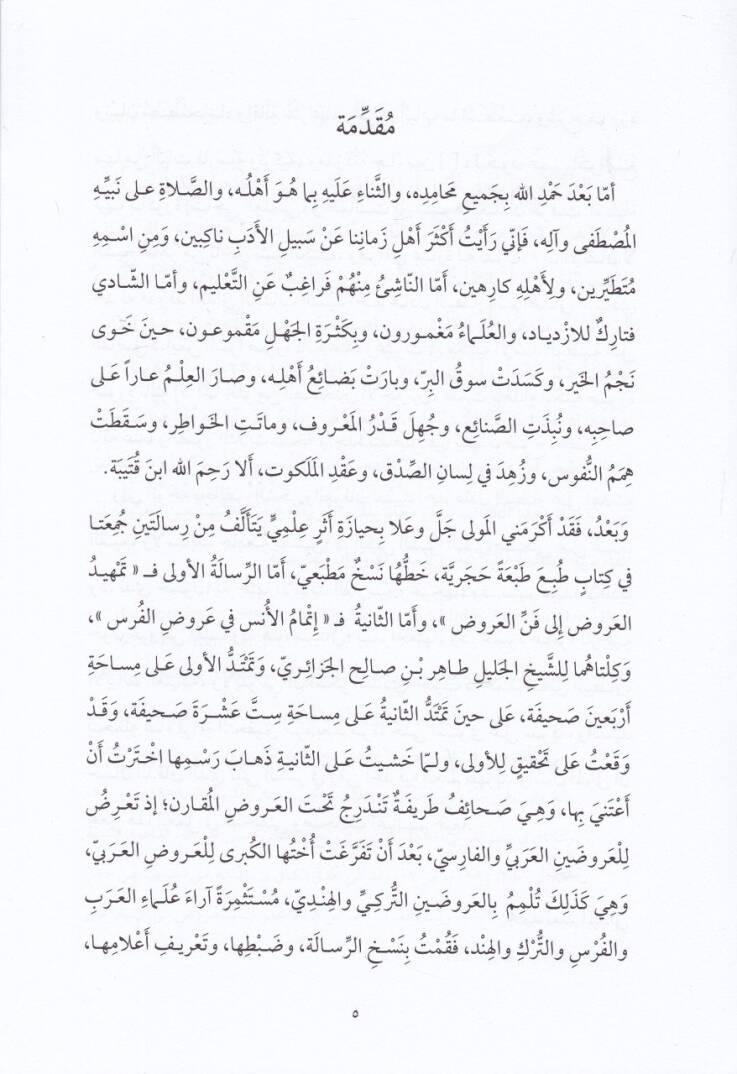 مُقَدِّمَة
أمّا بَعْدَ حَمْدِ الله بِجَميعِ مَحامِدِه، والثَّناءِ عَلَيهِ بِما هُوَ أَهْلُه، والصَّلاةِ على نَبيِّهِ
المُصْطَفى وآلِه، فَإنّي رَأَيْتُ أَكْثَرَ أَهْلِ زَمانِنا عَنْ سَبيلِ الأَدَبِ ناكِبين، وَمِنِ اسْمِهِ
مُتَطَيِّرين، ولِأَهْلِهِ كارِهين، أَمّا النّاشِئُ مِنْهُمْ فَراغِبٌ عَنِ التَّعْليم، وأمّا الشّادي
فتارِكٌ للازْدياد، والعُلَماءُ مَغْمورون، وبِكَثْرَةِ الجَهْلِ مَقْموعون، حينَ خَوى
نَجْمُ الخَير، وكَسَدَتْ سوقُ البِرّ، وبارَتْ بَضائِعُ أَهْلِه، وصارَ العِلْمُ عاراً عَلى
صاحِبِه، ونُبِذَتِ الصَّنائِع، وجُهِلَ قَدْرُ المَعْروف، وماتَتِ الخَواطِر، وسَقَطَتْ
هِمَمُ النُّفوس، وزُهِدَ في لِسانِ الصِّدْق، وعَقْدِ المَلَكوت، أَلا رَحِمَ الله ابنَ قُتَيبَة.
وَبَعْدُ، فَقَدْ أَكْرَمَني المَولى جَلَّ وعَلا بِحيازَةِ أَثَرٍ عِلْميٍّ يَتَأَلَّفُ مِنْ رِسالَتَينِ جُمِعَتا
في كِتابٍ طُبِعَ طَبْعَةً حَجَريَّة، خَطُّها نَسْخٌ مَطْبَعيّ، أَمّا الرِّسالَةُ الأولى فـ « تَمْهيدُ
العَروض إلى فَنِّ العَروض »، وأَمّا الثّانيةُ فـ « إِتْمامُ الأُنس في عَروضِ الفُرس »،
وَكِلْتاهُما لِلشَّيخِ الجَليلِ طاهِر بْنِ صالِح الجَزائِريّ، وَتَمْتَدُّ الأولى عَلى مِساحَةِ
أَرْبَعينَ صَحيفَة، عَلى حينَ تَمْتَدُّ الثّانيةُ عَلى مِساحَةِ سِتَّ عَشْرَةَ صَحيفَة، وَقَدْ
وَقَعْتُ عَلى تَحْقيقٍ لِلأولى، ولـمّا خَشيتُ عَلى الثّانيةِ ذَهابَ رَسْمِها اخْتَرْتُ أَنْ
أَعْتَنيَ بِها، وَهِيَ صَحائِفُ طَريفَةٌ تَنْدَرِجُ تَحْتَ العَروضِ المُقارن؛ إذ تَعْرِضُ
لِلْعَروضَينِ العَرَبيِّ والفارِسيّ، بَعْدَ أَنْ تَفَرَّغَتْ أُخْتُها الكُبرى لِلْعَروضِ العَرَبيّ،
وَهِيَ كَذَلِكَ تُلْمِمُ بِالعَروضَينِ التُّركيِّ والهِنْديّ، مُسْتَثْمِرَةً آراءَ عُلَماءِ العَرَبِ
والفُرْسِ والتُّركِ والهِنْد، فَقُمْتُ بِنَسْخِ الرِّسالَة، وضَبْطِها، وتَعْريفِ أَعْلامِها،
٥